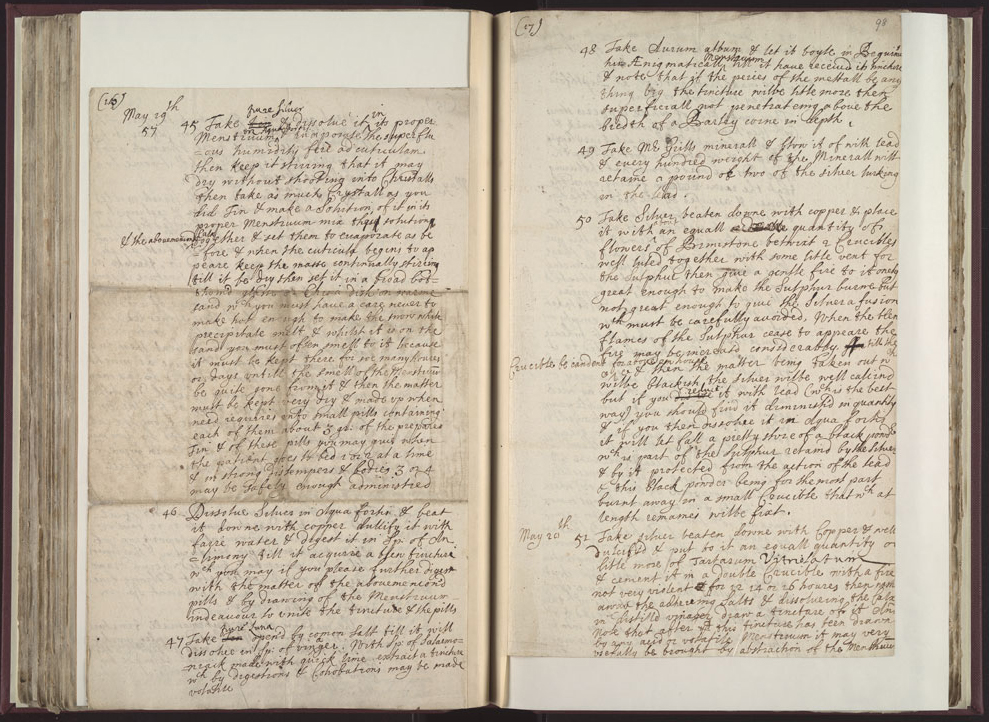 (16)
May 19th
57
45 Take pure Silver & dissolve it in its proper
Menstruum on Aqua fortis evaporate the superflu
ous humidity ad cuticulam
then keep it stirring that it may
dry without shooting into Christalls
then take as much Crystall as you
did Tin & make a Solution of it in its
proper Menstruum mix these solutions
& the abovemention'd together & set them to evaporate as be
fore & when the cuticula begins to ap
peare keep the masse continually stirring
till it be dry then set it in a broad bot=
China dish on warme
sand wch you must have a care never to
make hot enough to make the snow white
precipitate melt & whilst it is on the
sand you must often smell to it because
it must be kept there for soe many houres
or days untill the smell of the Menstruum
be quite gone from it & then the matter
must be kept very dry & made up when
need requires into small pills containing
each of them about 3 gr: of the prepared
Tin & of these pills you may give when
the patient goes to bed 1 or 2 at a time
& in strong distempers & bodies 3 or 4
may be safely enough administred
46 Dissolve Silver in Aqua fortis & beat
it downe with copper dulcify it with
faire water & digest it in Sp: of An
=timony till it acquire a tincture
wch you may if you please further digest
with the matter of the abovementiond
pills & by drawing of the Menstruum
indeavour to unite the tincture & the pills
47 Take pure Luna opend by comon salt till it will
dissolve in Sp: of vinger. With Sp: of Salarmo=
niack made with quick lime extract a tincture
wch by digestions & Cohobations may be made
volatile
(17)
98
48 Take Aurum album & let it boyle in Beguinus
his Ænigmaticall Menstruum till it have received its tincture
& note that if the peices of the mettall be any
thing big the tincture wilbe little more then
superficiall not penetrateing above the
bredth of a Barley corne in depth.
49 Take Mr Gills minerall & flow it of with lead
& every hundred weight of the Minerall will
retaine a pound or two of the silver lurking
in the lead.
50 Take Silver beaten downe with copper & place
it with an equall quantity of
flowers of Brimstone betwixt 2 Crucibles
well luted together with some little vent for
the Sulphur then give a gentle fire to it onely
great enough to make the Sulphur burne but
not great enough to give the Silver a fusion
wch must be carefully avoided. When the blew
flames of the Sulphur cease to appeare the
fire may be increasd considerabley till the
Crucibles be candent for about an houre
& then the matter being taken out
wilbe blackish the Silver wilbe well calcind
but if you reduce it with lead (wch is the best
way) you should find it diminishd in quantity
& if you then dissolve it in Aqua fortis
it will let fall a pretty store of a black powder
wch is part of the Sulphur retaind by the Silver
& by it protected from the action of the lead
& this black powder being for the most part
burnt away in a small Crucible that wch at
length remaines wilbe fixt.
May 20th 51 Take silver beaten downe with Copper & well
dulcified & put to it an equall quantity or
little more of Tartarum Vitriolatum
& cement it in a double Crucible with a fire
not very violent for 12 14 or 16 houres then
away the adhering Salts & dissolveing the calx
in distilld vinager draw a tincture of it And
Note that after this tincture has been drawn
by an acid or volatile Menstruum it may very
vsefully be brought by abstraction of the Menstruum